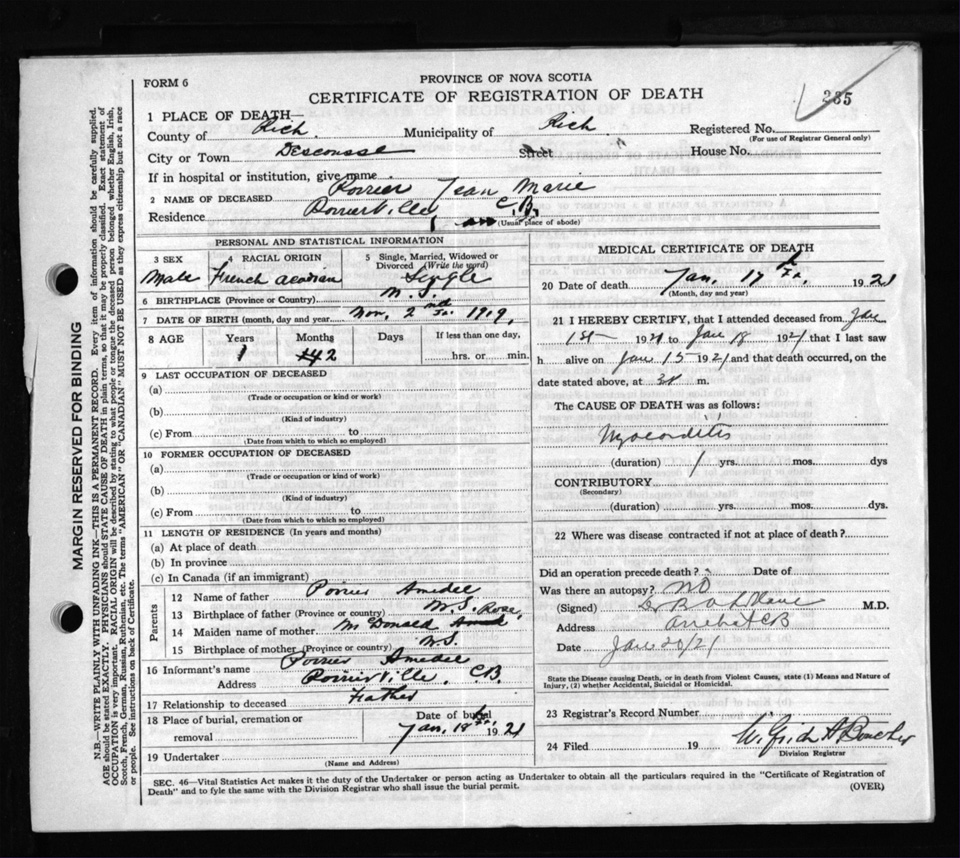 FORM 6
PROVINCE OF NOVA SCOTIA
CERTIFICATE OF REGISTRATION OF DEATH
235
1 PLACE OF DEATH—
County of Rich. Municipality of Rich. Registered No.
(For use of Registrar General only)
City or Town Descousse Street House No.
If in hospital or institution, give name
2 NAME OF DECEASED Poirier Jean Marie
Residence Poirierville C.B.
(Usual place of abode)
PERSONAL AND STATISTICAL INFORMATION
3 SEX Male
4 RACIAL ORIGIN French Acadian
5 Single, Married, Widowed or Divorced (Write the word) Single
6 BIRTHPLACE (Province or Country) N.S.
7 DATE OF BIRTH (month, day and year) Nov. 2nd 1919.
8 AGE Years 1 Months 2 Days If less than one day, hrs. or min.
9 LAST OCCUPATION OF DECEASED
(a)
(Trade or occupation or kind or work)
(b)
(Kind of industry)
(c) From to
(Date from which to which so employed)
10 FORMER OCCUPATION OF DECEASED
(a)
(Trade or occupation or kind of work)
(b)
(Kind of industry)
(c) From to
(Date from which to which so employed)
11 LENGTH OF RESIDENCE (In years and months)
(a) At place of death
(b) In province
(c) In Canada (if an immigrant)
Parents
12 Name of father Poirier Amedee
13 Birthplace of father (Province or country) N.S.
14 Maiden name of mother McDonald Rose
15 Birthplace of mother (Province or country) N.S.
16 Informant's name Poirier Amedee
Address Poirierville, C.B.
17 Relationship to deceased Father
18 Place of burial, cremation or removal
Date of burial Jan. 18 1921
19 Undertaker
(Name and Address)
MEDICAL CERTIFICATE OF DEATH
20 Date of death Jan. 17th 1921
(Month, day and year)
21 I HEREBY CERTIFY, that I attended deceased from Jan
1st 1921 to Jan 18 1921 that I last saw
h alive on Jan 15 1921 and that death occurred, on the
date stated above, at m.
The CAUSE OF DEATH was as follows:
Myocarditis
(duration) 1 yrs. mos. dys
CONTRIBUTORY
(Secondary)
(duration) yrs. mos. dys.
22 Where was disease contracted if not at place of death?
Did an operation precede death? Date of
Was there an autopsy? NO
(Signed) Dr M.D.
Address Arichat CB
Date Jan 20/21
State the Disease causing Death, or in death from Violent Causes, state (1) Means and Nature of
Injury, (2) whether Accidental, Suicidal or Homicidal.
23 Registrar's Record Number
24 Filed 19 Boucher
Division Registrar
SEC. 46—Vital Statistics Act makes it the duty of the Undertaker or person acting as Undertaker to obtain all the particulars required in the "Certificate of Registration of
Death" and to fyle the same with the Division Registrar who shall issue the burial permit.
(OVER)
MARGIN RESERVED FOR BINDING
N.B.—WRITE PLAINLY WITH UNFADING INK—THIS IS A PERMANENT RECORD. Every item of information should be carefully supplied.
AGE should be stated EXACTLY. PHYSICIANS should STATE CAUSE OF DEATH in plain terms, so that it may be properly classified. Exact statement of
OCCUPATION is very important. RACIAL ORIGIN will be described by stating to what people or tongue the deceased person belonged whether English, Irish,
Scotch, French, German, Russian, Ruthenian, etc. The terms "AMERICAN" OR "CANADIAN" MUST NOT BE USED as they express citizenship but not a race
or people. See instructions on back of Certificate.